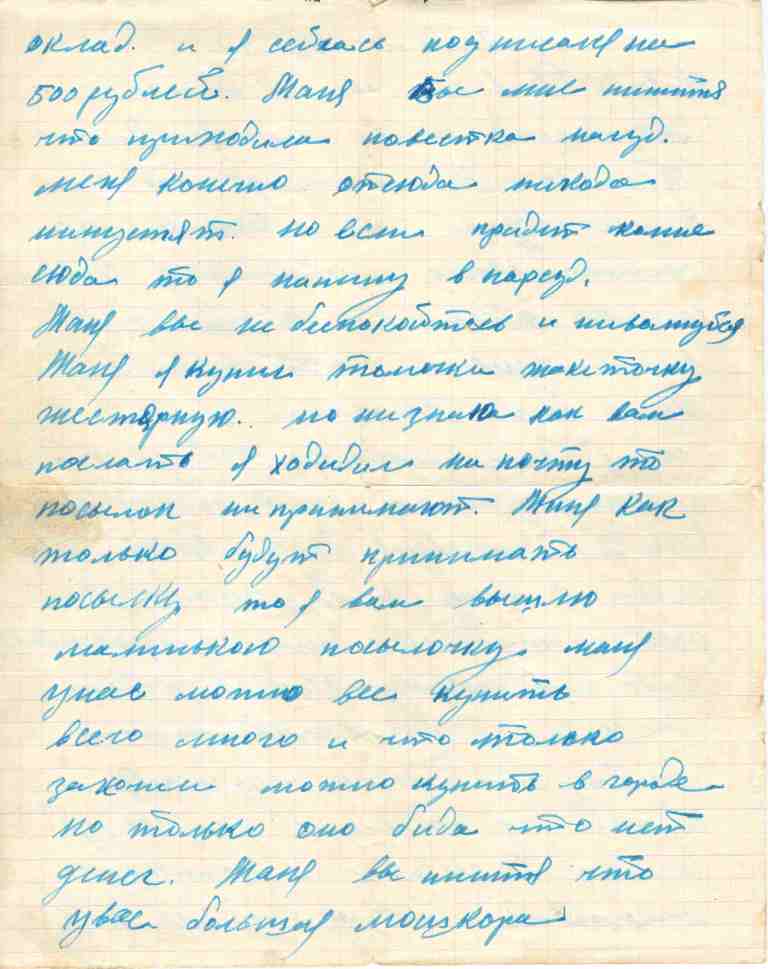 оклад. и я сейчась подписаня на
500 рублей. Маня вы мне пишитя
что приходила повестка насуд.
меня конешно отсюда никода
нипустят. но если придет
сюда то я напишу в нарсуд.
Маня вы не беспокойтесь и ниволнуйся
Маня я купил томочки жакеточку
шестяную. но низнаю как вам
послать я ходидил на почту то
посылок ни принимают. Маня как
только будут принимать
посылку то я вам вышлю
малинькою посылочку. маня
унас можно все купить
всего много и что только
захоти можно купить в городе
но только оно бида что нет
денег. Маня вы пишитя что
увас большая